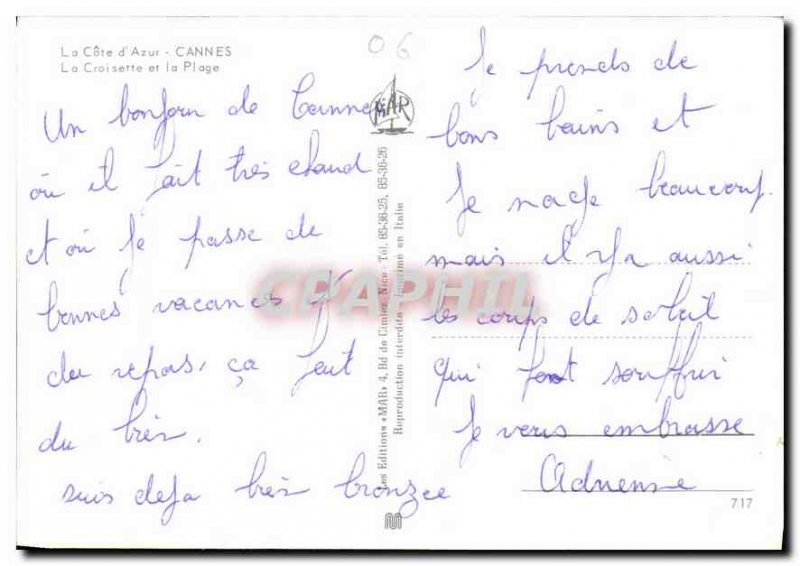 La Côte d'Azur - CANNES
La Croisette et la Plage
06
Un bonjour de Cannes
où il fait très chaud
et où je passe de
bonnes vacances
du repos, ça fait
du bien.
suis deja bien bronzée
MAR
Les Editions «MAR» 4, Bd de Cimiez, Nice - Tél. 85-36-25, 85-36-26
Reproduction interdite - Imprimé en Italie
Je prends de
bons bains et
Je nage beaucoup.
mais il y a aussi
les coups de soleil
qui font souffrir
Je vous embrasse
Adrienne
717
CPAPHIL